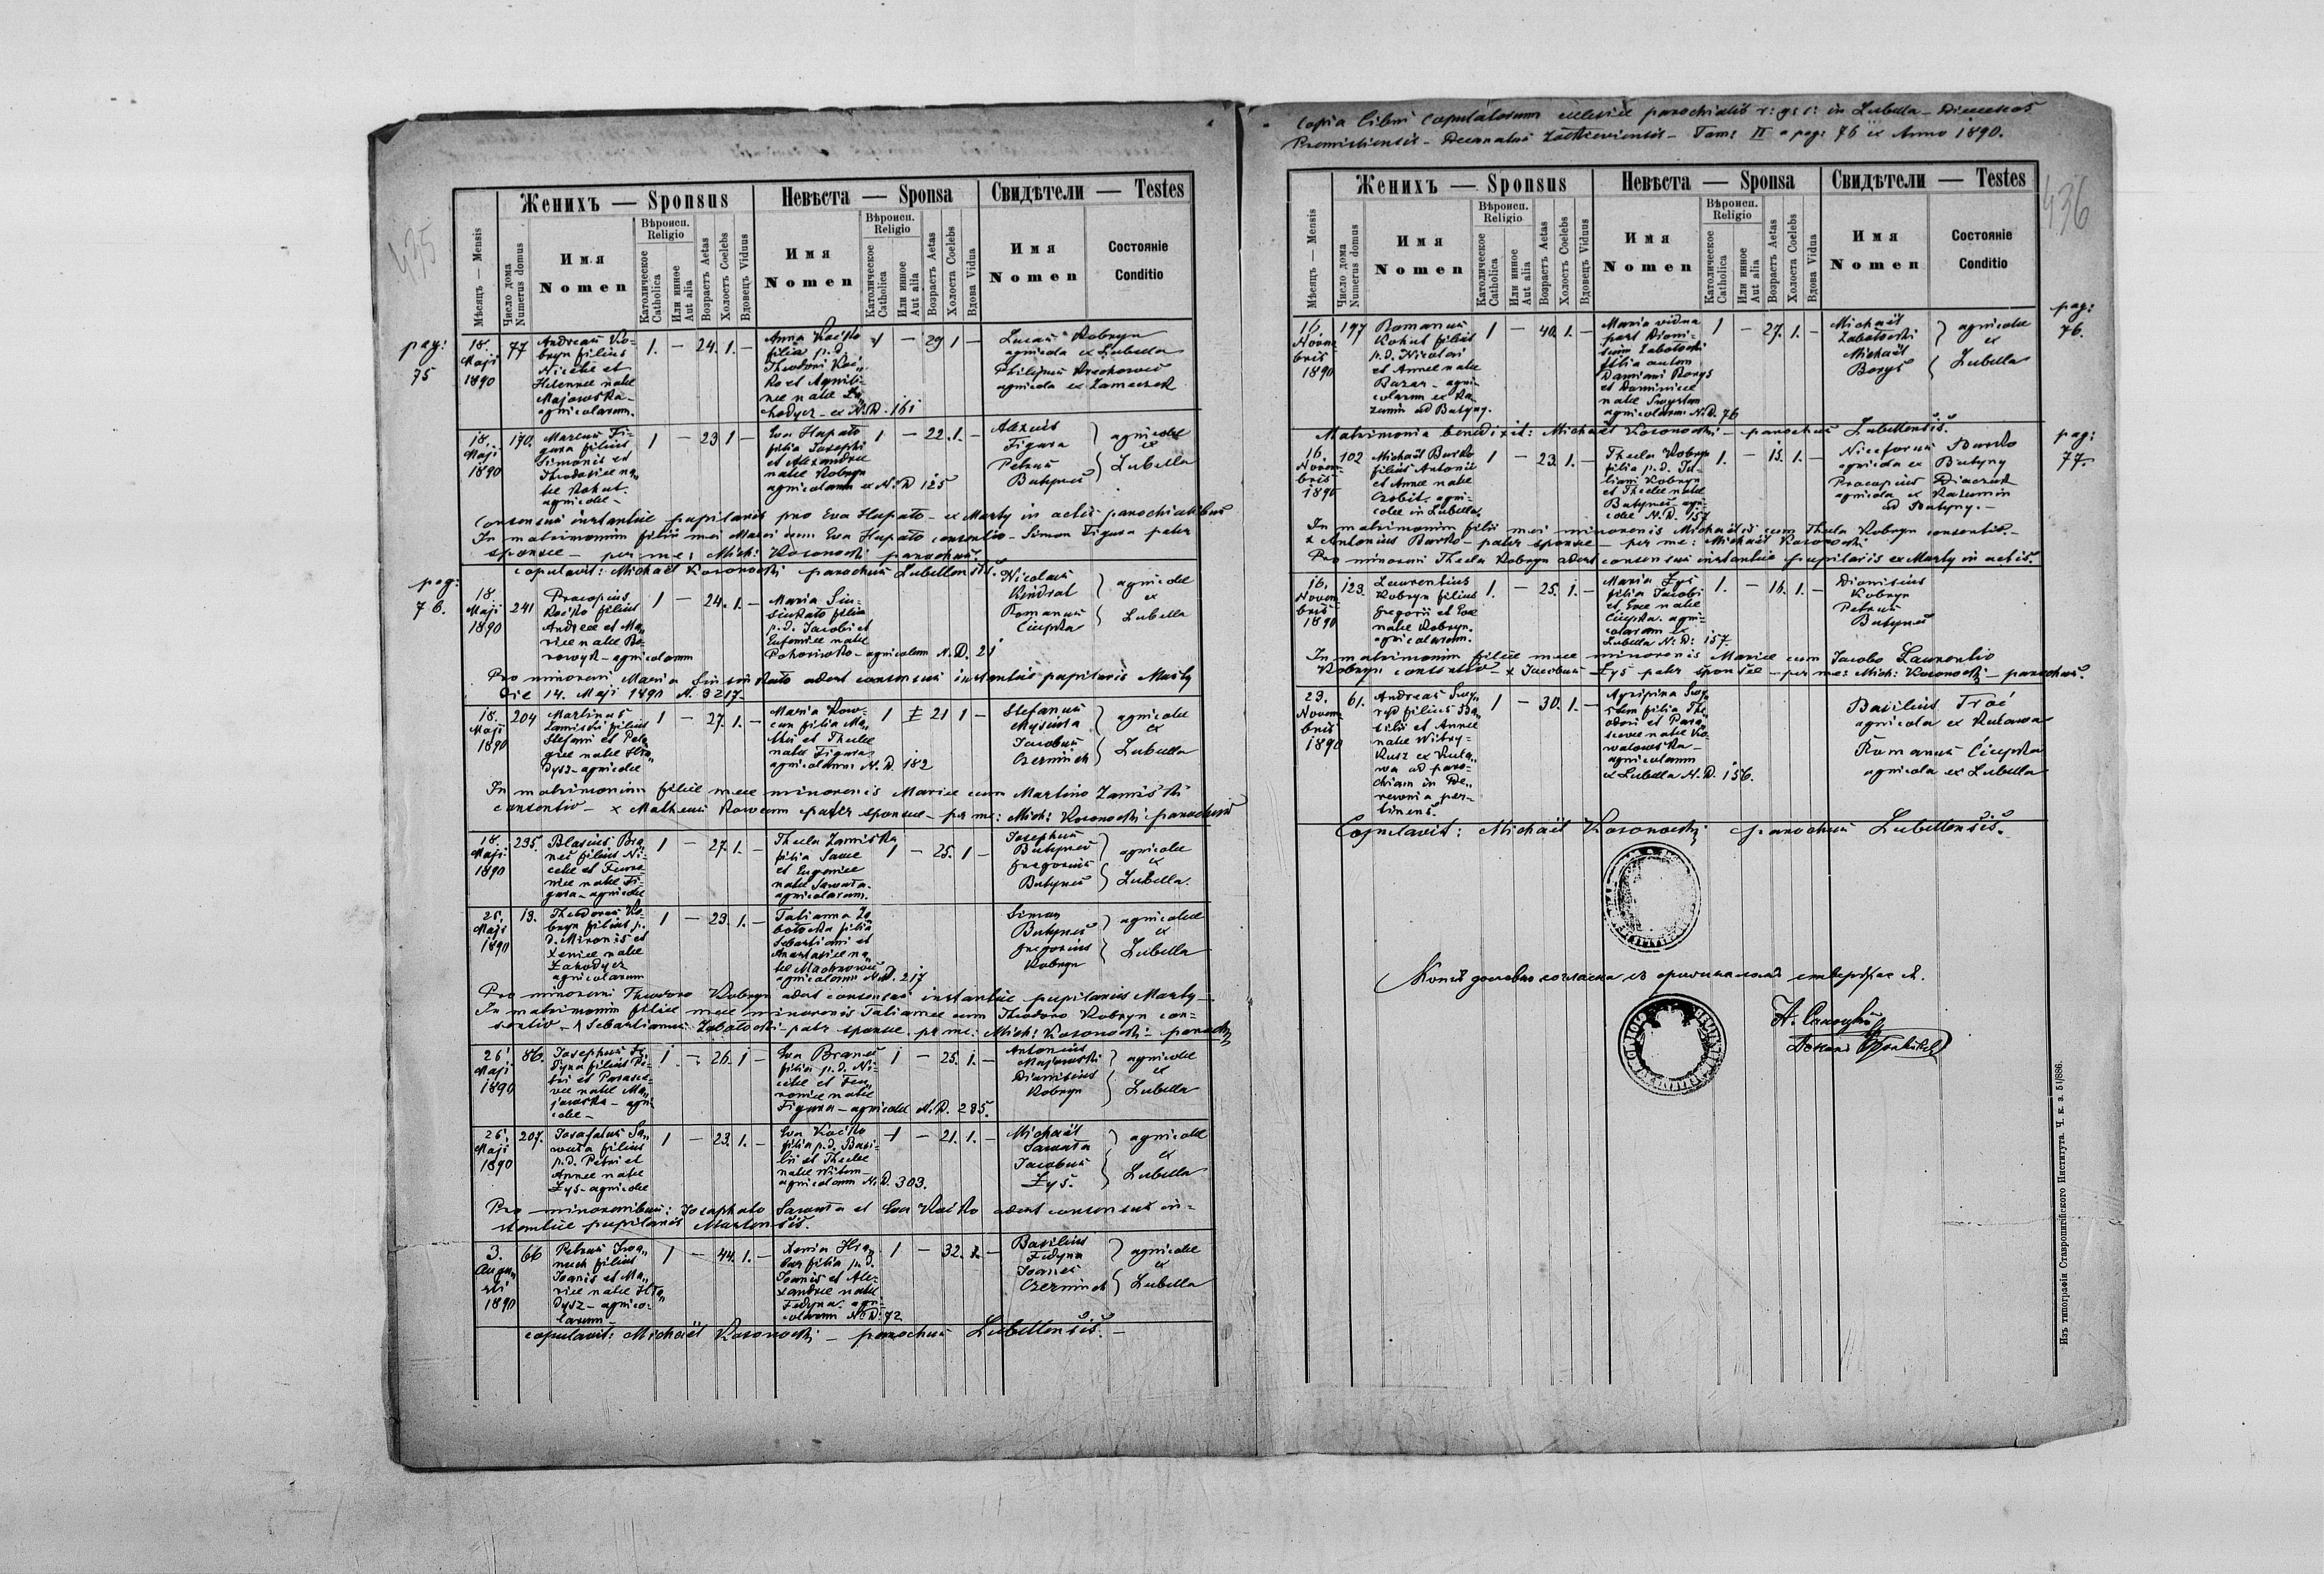 435
Женихъ — Sponsus
Невѣста — Sponsa
Свидѣтели — Testes
Мѣсяцъ — Mensis
Число дома
Numerus domus
Имя
Nomen
Вѣроисп.
Religio
Католическое
Catholica
Или инное
Aut alia
Возрастъ Aetas
Холостъ Coelebs
Вдовецъ Viduus
Имя
Nomen
Вѣроисп.
Religio
Католическое
Catholica
Или инное
Aut alia
Возрастъ Aetas
Холоста Coelebs
Вдова Vidua
Имя
Nomen
Состояніе
Conditio
pag:
75
18.
Maji
1890
77
Andreas Ko-
bryn filius
Nicetae et
Helennae natae
Majowska-
agricolarum.
1. — 24. 1. —
Anna Kościo
filia p. d.
Theodori Koś-
nae natae Za-
chodycz - ex N. D. 161
1 — 29 1 —
Lucas Kobryn
agricola ex Lubella
agricola ex Zameczek
18.
Maji
1890
170.
Marcus Fi-
gura filius
Simonis et
Theodosiae na-
tae Kohut
agricolae -
1 — 23 1 —
Eva Hupało
filia Josephi
et Alexandrae
natae Kobryn
agricolarum ex N. D 125
1 — 22. 1. —
Alexius
Figura
Petrus
Butyneć
agricolae
ex
Lubella
Consensus instantiae pupilaris pro Eva Hupało - ex Mosty in actis parochialibus
In matrimonium filii mei Marci cum Eva Hupało consentio - Simon Figura pater
sponsae - per me: Mich: Kosonocki parochus.
copulavit: Michaël Kosonocki parochus Lubellensis.
pag:
76.
18
Maji
1890
241
Procopius
Kościo filius
Andreae et Ma-
riae natae Bo-
rowyk - agricolarum
1 — 24. 1. —
Maria Sin-
p. d. Jacobi et
Eufemiae natae
agricolarum N. D. 21
Nicolaus
Kindrat
Romanus
Ciupka
agricolae
ex
Lubella
Pro minorenni Maria adest consensus instantiae pupilaris Mosty
die 14. Maji 1890 N. 3217.
18.
Maji
1890
204
Martinus
Zamiski filius
Stefani et Pela-
giae natae Hła-
dysz - agricolae
1 — 27. 1. —
Maria Kow-
cun filia Ma-
thei et Theclae
natae Figura
agricolarum N. D. 182
1 — 21 1 —
Stefanus
Jacobus
Czerminek
agricolae
ex
Lubella
In matrimonium filiae meae minorenis Mariae cum Martino Zamiski
consentio - x Matheus Kowcun pater sponsae - per me: Mich: Kosonocki parochus
18.
Maji
1890
235.
Blasius Bra-
neć filius Ni-
cetae et Fevro-
niae natae Fi-
gura - agricolae
1 — 27. 1. —
Thecla Zamiska
filia Savae
et Eugeniae
natae Sawuła.
agricolarum.
1 — 25. 1 —
Josephus
Butyneć
Gregorius
Butyneć
agricolae
ex
Lubella.
26.
Maji
1890
13.
Theodorus Ko-
bryn filius p.
d. Mironis et
Xeniae natae
Zahodycz
agricolarum
1 — 23. 1. —
Tatianna Za-
botocka filia
Sebastiani et
Anastasiae na-
tae Machnowić
agricolarum N. D. 217
Simon
Butyneć
Gregorius
Kobryn
agricolae
ex
Lubella
Pro minorenni Theodoro Kobryn adest consensus instantiae pupilaris Mosty -
In matrimonium filiae meae minorenis Tatiannae cum Theodoro Kobryn con-
sentio - x Sebastianus Zabotocki - pater sponsae - per me: Mich: Kosonocki - parochus
26.
Maji
1890
86.
Josephus Fe-
dyna filius Pe-
tri et Parasce-
vae natae Ma-
jowska - agri-
colae -
1. — 26. 1 —
Eva Braneć
filia p. d. Ni-
cetae et Fev-
roniae natae
Figura - agricolae N. D. 235.
1 — 25. 1. —
Antonius
Majowski
Dionisius
Kobryn
agricolae
ex
Lubella
26.
Maji
1890
207.
Josafatus Sa-
wuła filius
p. d. Petri et
Annae natae
Zys - agricolae
1 — 23. 1. —
Eva Kościo
filia p. d. Basi-
lii et Theclae
agricolarum N. D. 303.
1 — 21. 1. —
Michaël
Sawuła
Jacobus
Zys.
agricolae
ex
Lubella
Pro minorenibus: Josaphato Sawuła et Eva Kościo adest consensus in-
stantiae pupilaris Mostensis.
3.
Augu-
sti
1890
66
Petrus Iwa-
nuch filius
Joannis et Ma-
riae natae Hła-
dysz - agrico-
larum
1 — 44. 1. —
Xenia Hła-
filia p. d.
Joannis et Ale-
xandrae natae
Fedyna. agri-
colarum N. D. 72
1 — 32. 1. —
Basilius
Fedyna
Joannes
Czerminek
agricolae
ex
Lubella
copulavit: Michaël Kosonocki - parochus Lubellensis. -
Copia libri Copulatorum ecclesiae parochialis r: gr: c: in Lubella - Dioeceseos
Premisliensis - Decanatus Żołkieviensis - Tom: II a pag: 76 ex Anno 1890.
436
Женихъ — Sponsus
Невѣста — Sponsa
Свидѣтели — Testes
Мѣсяцъ — Mensis
Число дома
Numerus domus
Имя
Nomen
Вѣроисп.
Religio
Католическое
Catholica
Или инное
Aut alia
Возрастъ Aetas
Холостъ Coelebs
Вдовецъ Viduus
Имя
Nomen
Вѣроисп.
Religio
Католическое
Catholica
Или инное
Aut alia
Возрастъ Aetas
Холоста Coelebs
Вдова Vidua
Имя
Nomen
Состояніе
Conditio
pag:
76.
16.
Novem-
bris
1890
197
Romanus
Kohut filius
p. d. Nicolai
et Annae natae
Bazar - agri-
colarum ex Ka-
zumin ad Butyny.
1 — 40. 1. —
Maria vidua
post Dioni-
sium Zabotocki
filia autem
Damiani Borys
et Dominicae
natae
agricolarum N. D. 76
1 — 27. 1. —
Michaël
Zabotocki
Michaël
Borys
agricolae
ex
Lubella
Matrimonia benedixit: Michaël Kosonocki - parochus Lubellensis.
pag:
77.
16.
Novem-
bris
1890
102
Michaël Burko
filius Antonii
et Annae natae
agri-
colae in Lubella.
1 — 23. 1. —
Thecla Kobryn
filia p. d. Ju-
liani Kobryn
et Theclae natae
Butyneć - agri-
colae N. D. 157
1. — 18. 1. —
Niceforus Burko
agricola ex Butyny
Procopius Diaczuk
agricola ex Kazumin
ad Butyny. -
In matrimonium filii mei minorenis Michaëlis cum Thecla Kobryn consentio. -
x Antonius Burko - pater sponsae - per me: Michaël Kosonocki
Pro minorenni Thecla Kobryn adest consensus instantiae pupilaris ex Mosty in actis.
16.
Novem-
bris
1890
123.
Laurentius
Kobryn filius
Gregorii et Evae
natae Kobryn.
agricolarum.
1. — 25. 1. —
Maria Zys
filia Jacobi
et Evae natae
Ciupka. agri-
colarum ex
Lubella N. D: 157
1. — 16. 1. —
Dionisius
Kobryn
Petrus
Butyneć
In matrimonium filiae meae minorenis Mariae cum Jacobo Laurentio
Kobryn consentio - x Jacobus Zys - pater sponsae - per me: Mich: Kosonocki - parochus.
23.
Novem-
bris
1890
61.
Andreas
filius Ba-
silii et Annae
natae Witry-
kusz ex Ruda-
wa ad paro-
chiam in De-
rewnia per-
tinens.
1 — 30. 1. —
Agripina
filia The-
odori et Para-
scevae natae Ko-
walowska -
agricolarum
ex Lubella N. D. 156.
Basilius Troć
agricola ex
Romanus Ciupka
agricola ex Lubella
Copulavit: Michaël Kosonocki parochus Lubellensis.
Копія дословно согласна съ оригиналомъ
Изъ типографіи Ставропигійского Института. Ч. к. з. 51/886.